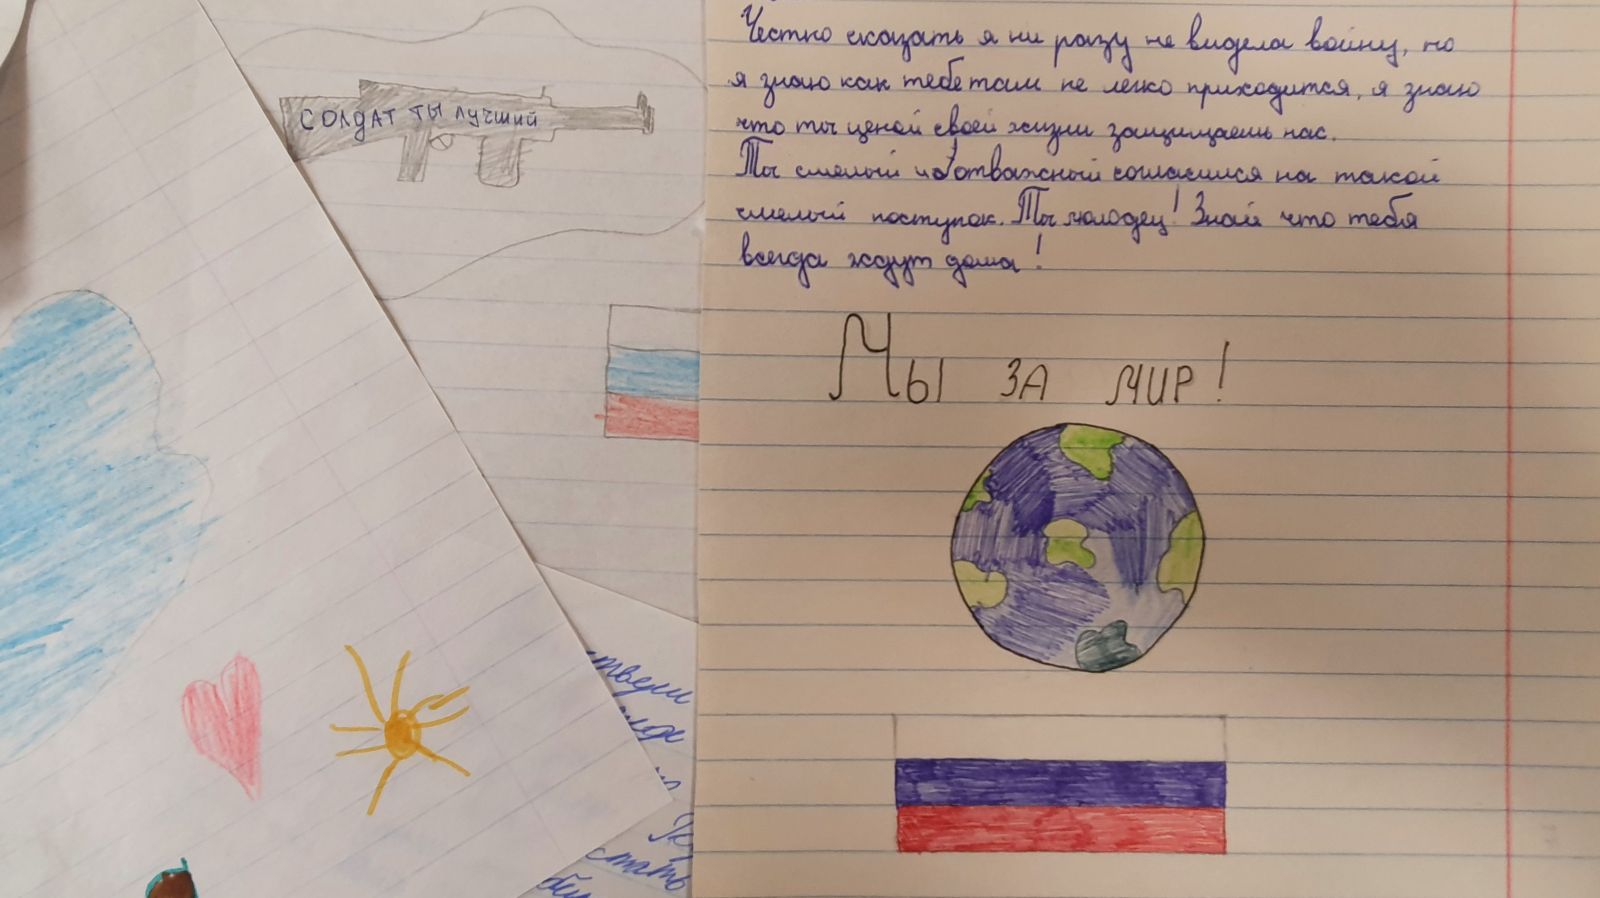 СОЛДАТ ТЫ лучший
Честно сказать я ни разу не видела войну, но
я знаю как тебе там не легко приходится, я знаю
что ты ценой своей жизни защищаешь нас.
Ты смелый и отважный согласился на такой
смелый поступок. Ты молодец! Знай что тебя
всегда ждут дома!
Мы ЗА МИР!
стать